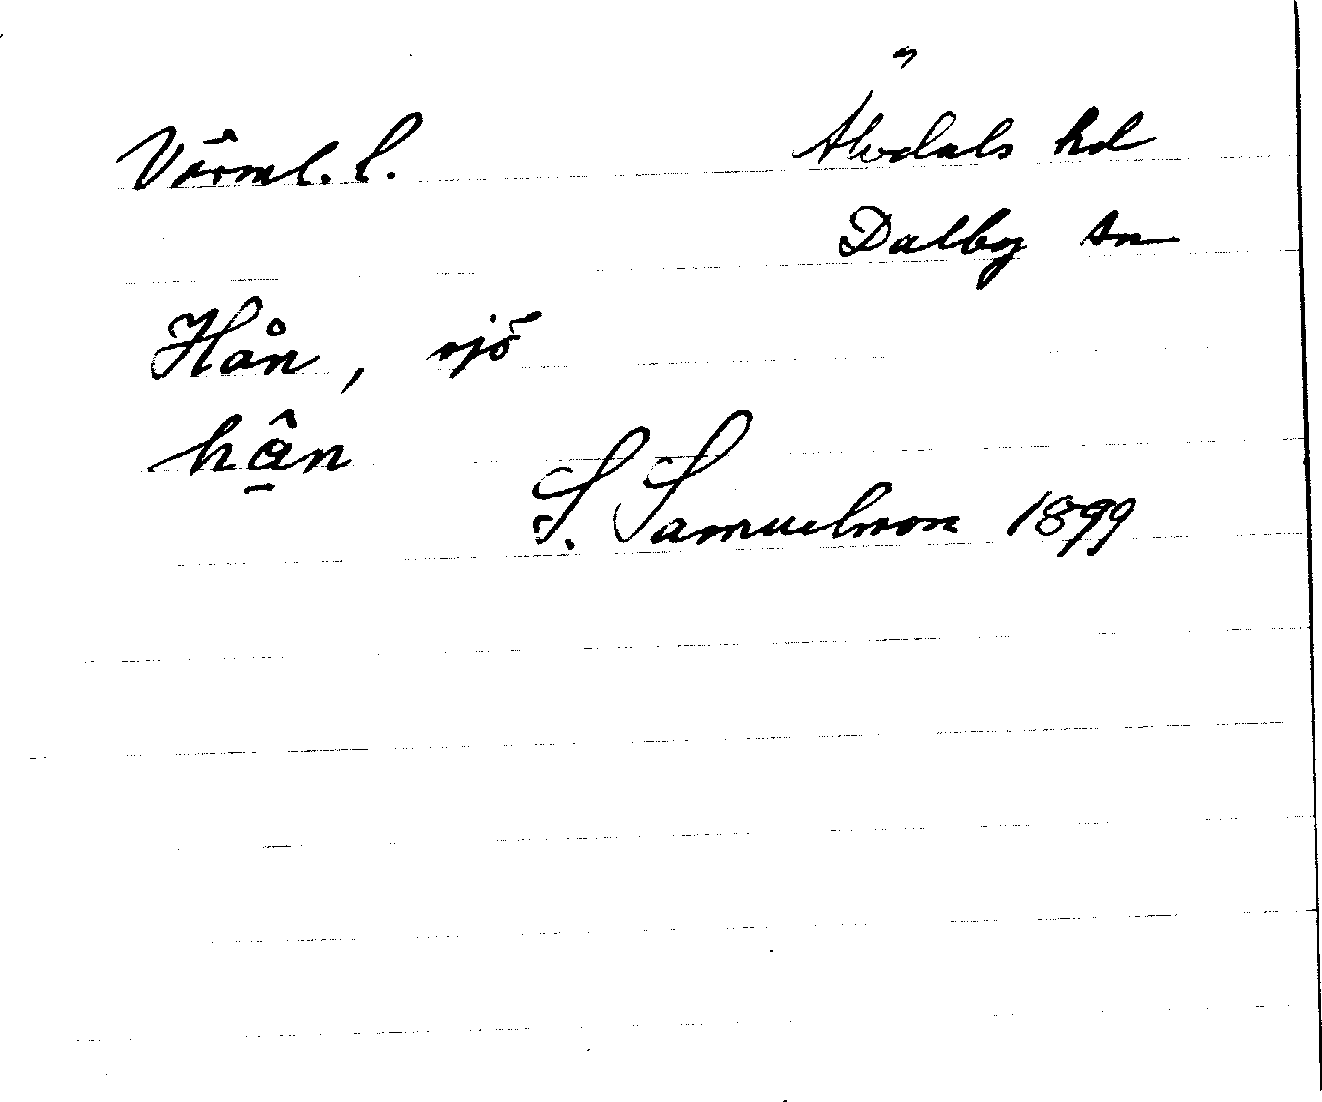 Värml. l.
Älvdals hd
Dalby sn
Hån, sjö
hâ̱n
S. Samuelsson 1899